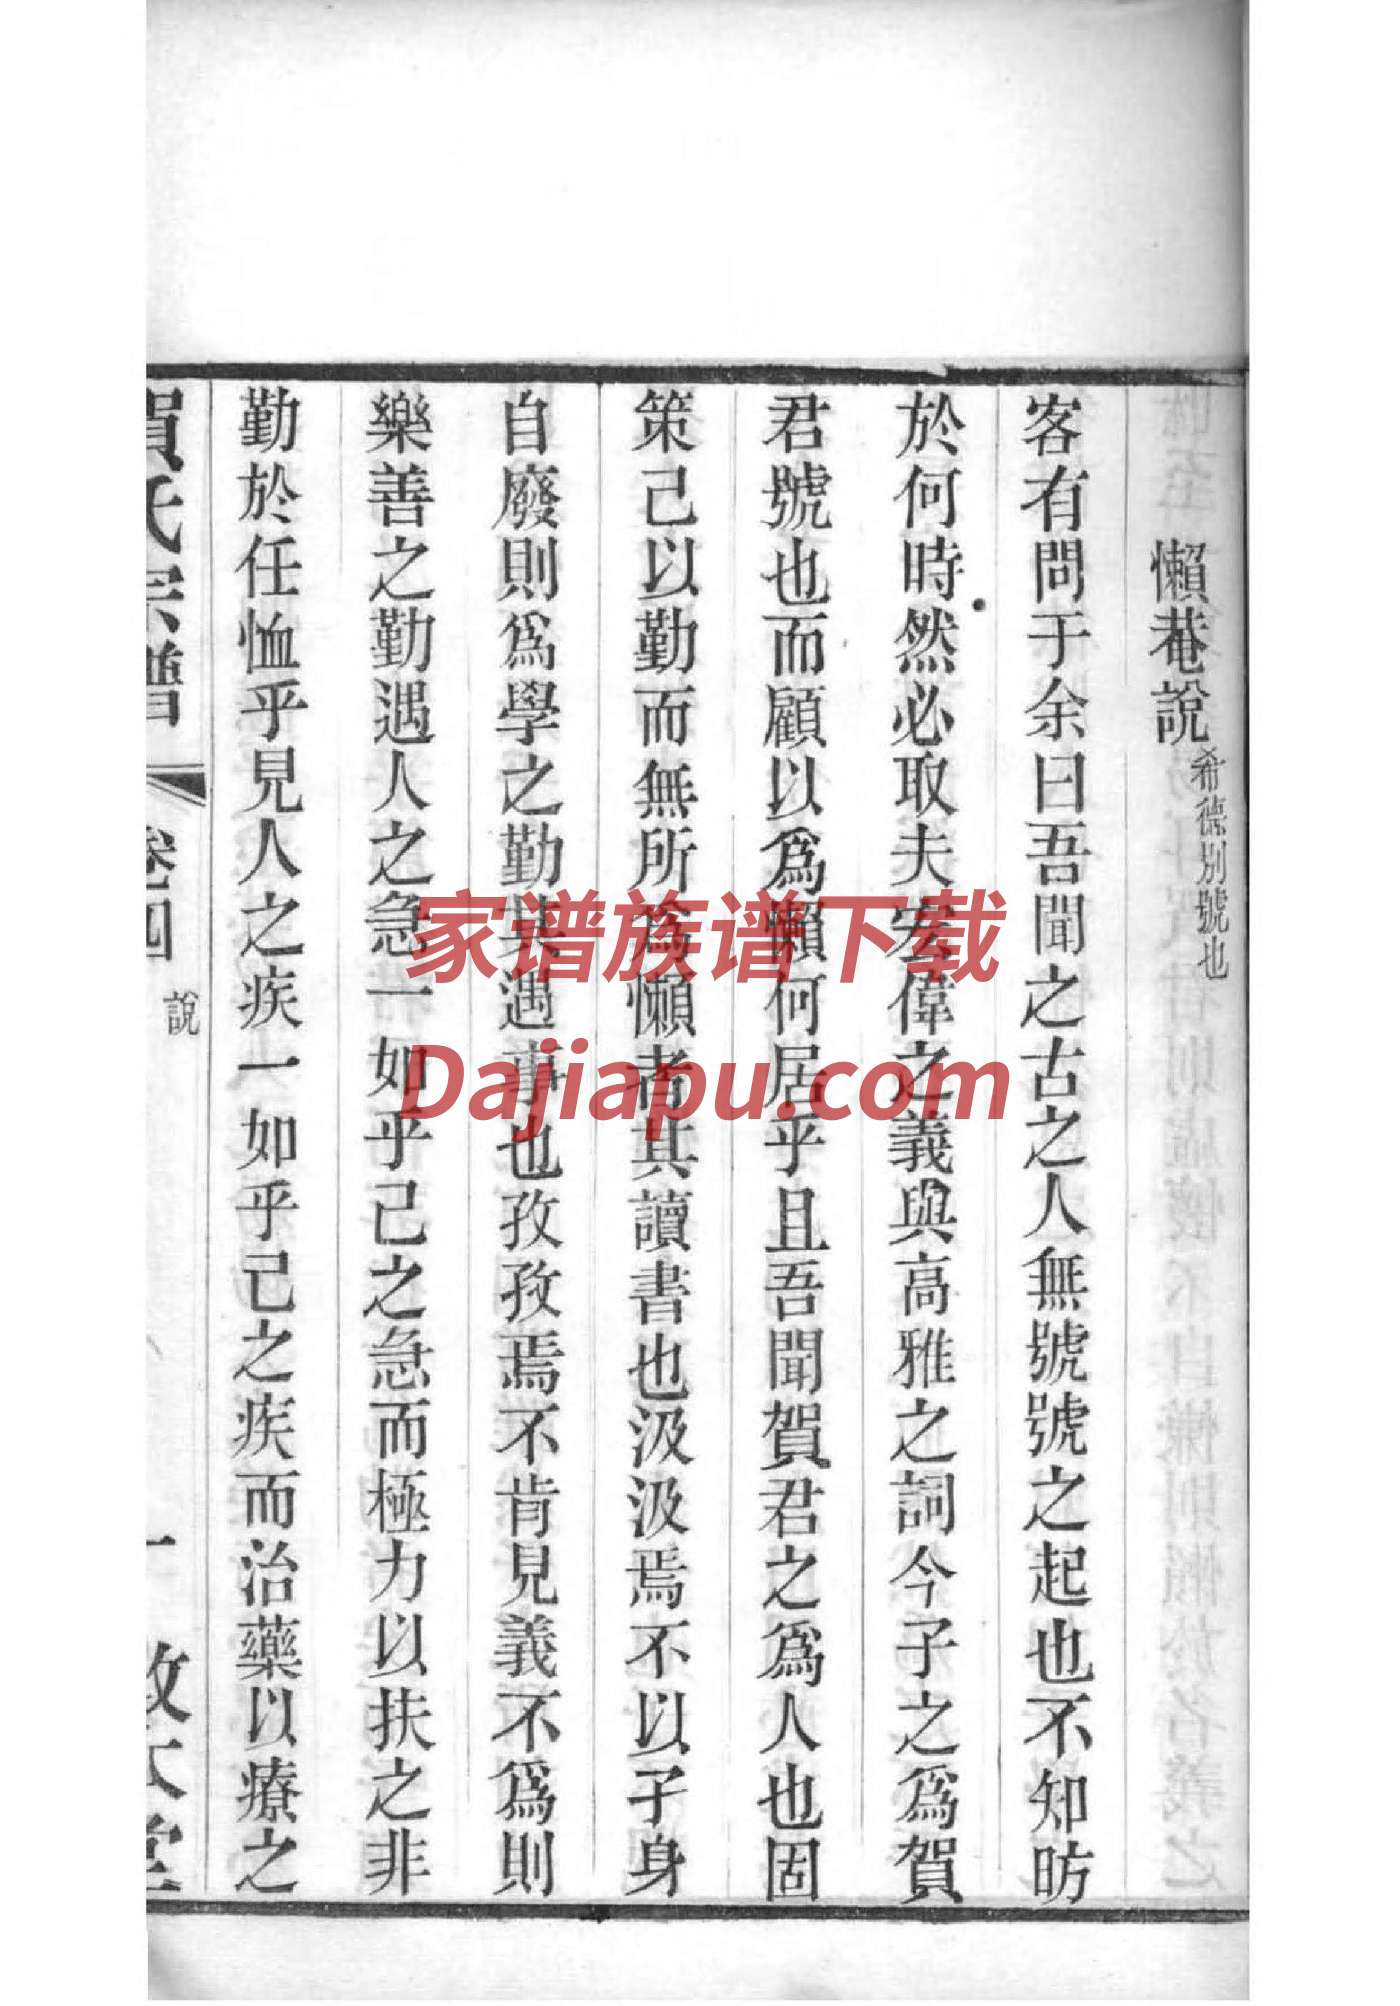 懶菴說希德別號也
客有問于余曰吾聞之古之人無號號之起也不知昉
於何時然必取夫宏偉之義與高雅之詞今子之為賀
君號也而顧以為懶何居乎且吾聞賀君之為人也固
策己以勤而無所為懶者其讀書也汲汲焉不以子身
自廢則為學之勤其遇事也孜孜焉不肯見義不為則
樂善之勤遇人之急一如乎己之急而極力以扶之非
勤於任恤乎見人之疾一如乎己之疾而治藥以療之
賀氏宗譜
卷四
說
一
敦本堂
家谱族谱下载
Dajiapu.com